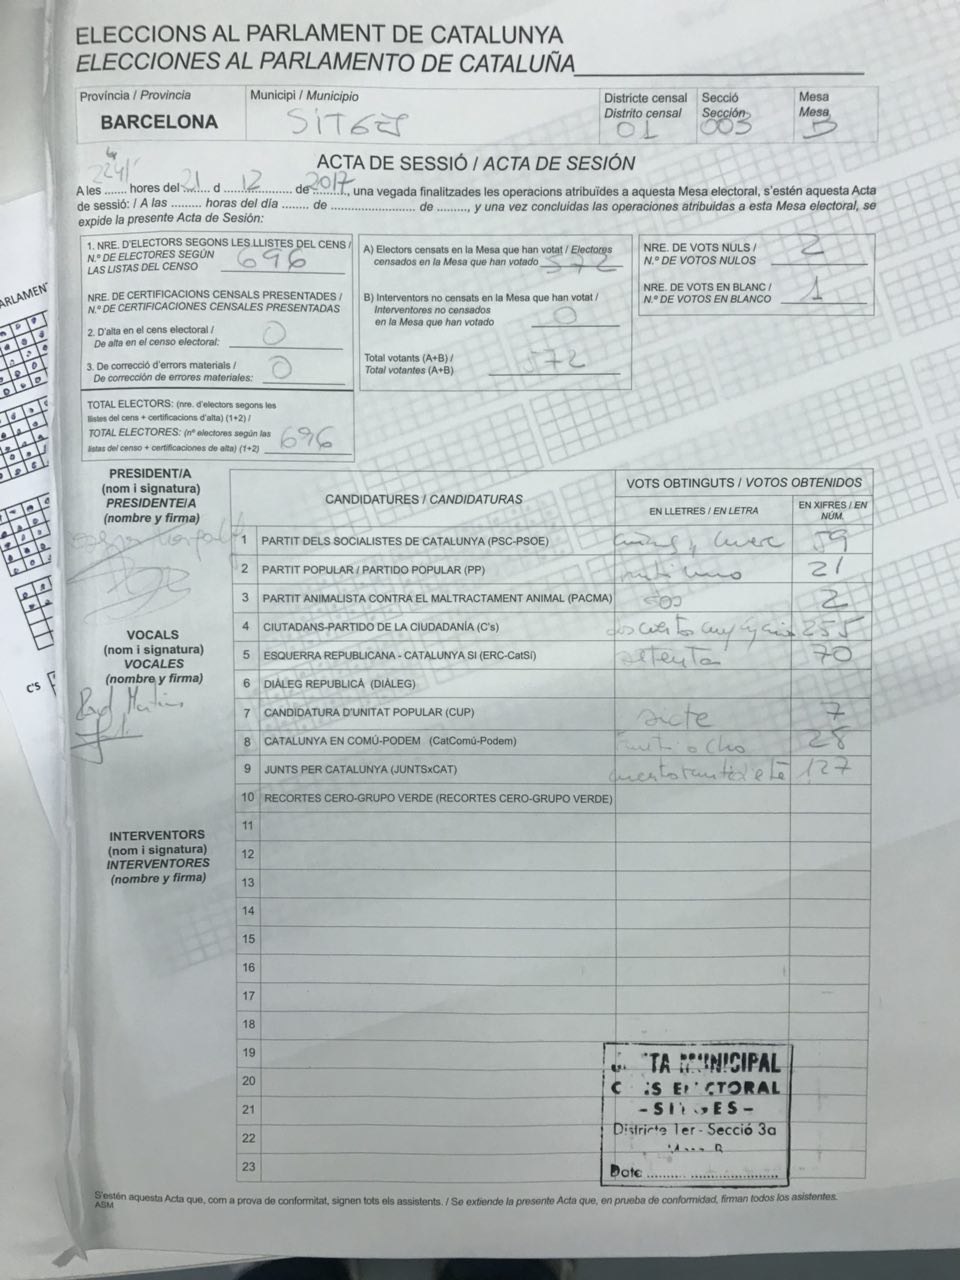 ELECCIONS AL PARLAMENT DE CATALUNYA
ELECCIONES AL PARLAMENTO DE CATALUÑA
Província / Provincia
BARCELONA
Municipi / Municipio
SITGES
Districte censal
Distrito censal
01
Secció
Sección
003
Mesa
Mesa
B
ACTA DE SESSIÓ / ACTA DE SESIÓN
A les ....... hores del 21 d 12 de 2017, una vegada finalitzades les operacions atribuïdes a aquesta Mesa electoral, s'estén aquesta Acta
de sessió: / A las ......... horas del día ........ de ........................... de ........., y una vez concluidas las operaciones atribuidas a esta Mesa electoral, se
expide la presente Acta de Sesión:
1. NRE. D'ELECTORS SEGONS LES LLISTES DEL CENS /
N.º DE ELECTORES SEGÚN
LAS LISTAS DEL CENSO 696
NRE. DE CERTIFICACIONS CENSALS PRESENTADES /
N.º DE CERTIFICACIONES CENSALES PRESENTADAS
2. D'alta en el cens electoral /
De alta en el censo electoral: 0
3. De correcció d'errors materials /
De corrección de errores materiales: 0
TOTAL ELECTORS: (nre. d'electors segons les
llistes del cens + certificacions d'alta) (1+2) /
TOTAL ELECTORES: (nº electores según las
listas del censo + certificaciones de alta) (1+2) 696
A) Electors censats en la Mesa que han votat / Electores
censados en la Mesa que han votado 572
B) Interventors no censats en la Mesa que han votat /
Interventores no censados
en la Mesa que han votado 0
Total votants (A+B) /
Total votantes (A+B) 572
NRE. DE VOTS NULS /
N.º DE VOTOS NULOS 2
NRE. DE VOTS EN BLANC /
N.º DE VOTOS EN BLANCO 1
PRESIDENT/A
(nom i signatura)
PRESIDENTE/A
(nombre y firma)
VOCALS
(nom i signatura)
VOCALES
(nombre y firma)
INTERVENTORS
(nom i signatura)
INTERVENTORES
(nombre y firma)
CANDIDATURES / CANDIDATURAS
VOTS OBTINGUTS / VOTOS OBTENIDOS
EN LLETRES / EN LETRA
EN XIFRES / EN NÚM.
1 PARTIT DELS SOCIALISTES DE CATALUNYA (PSC-PSOE) 59
2 PARTIT POPULAR / PARTIDO POPULAR (PP) 21
3 PARTIT ANIMALISTA CONTRA EL MALTRACTAMENT ANIMAL (PACMA) dos 2
4 CIUTADANS-PARTIDO DE LA CIUDADANÍA (C's) 255
5 ESQUERRA REPUBLICANA - CATALUNYA SÍ (ERC-CatSí) setenta 70
6 DIÀLEG REPUBLICÀ (DIÀLEG)
7 CANDIDATURA D'UNITAT POPULAR (CUP) siete 7
8 CATALUNYA EN COMÚ-PODEM (CatComú-Podem) 28
9 JUNTS PER CATALUNYA (JUNTSxCAT) 127
10 RECORTES CERO-GRUPO VERDE (RECORTES CERO-GRUPO VERDE)
11
12
13
14
15
16
17
18
19
20
21
22
23
MUNICIPAL
- SITGES -
Districte 1er - Secció 3a
Data
S'estén aquesta Acta que, com a prova de conformitat, signen tots els assistents. / Se extiende la presente Acta que, en prueba de conformidad, firman todos los asistentes.
ASM
C'S